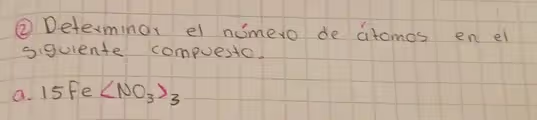 ② Determinar el número de átomos en el
siguiente compuesto.
a. 15Fe<NO₃>₃